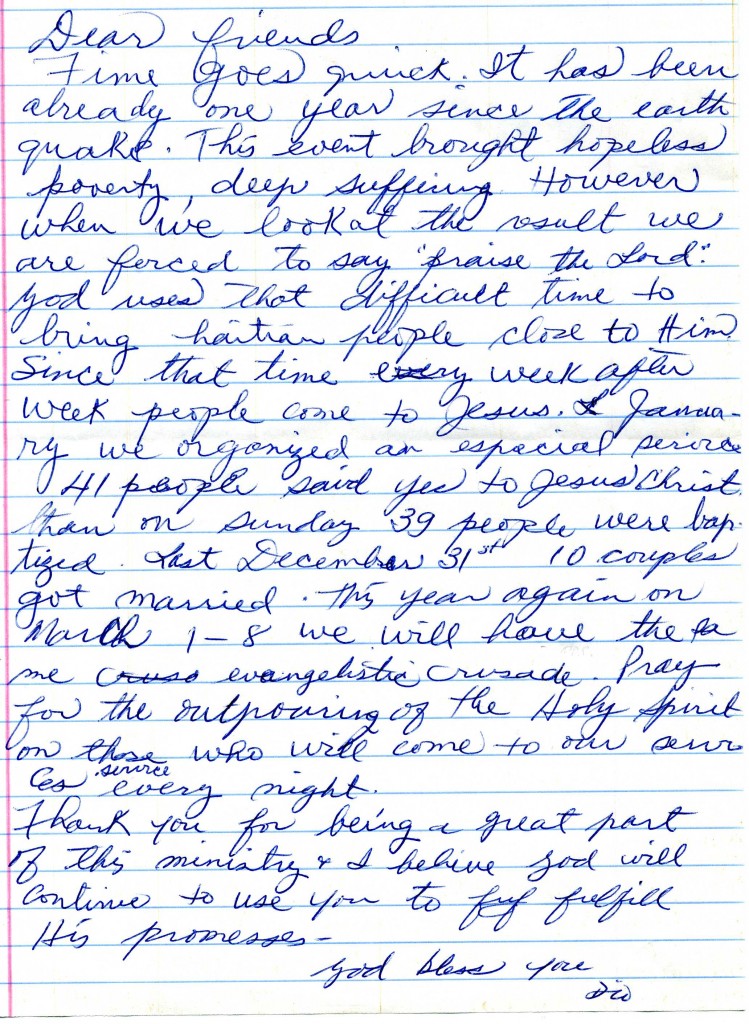 Dear friends
Time Goes quick. It has been
already one year since the earth
quake. This event brought hopeless
poverty, deep suffering However
when we look at the result we
are forced to say "praise the Lord".
God uses that difficult time to
bring haitian people close to Him.
Since that time every week after
week people come to Jesus. Janua-
ry we organized an especial service
41 people said yes to Jesus Christ.
than on sunday 39 people were bap-
tized. Last December 31st 10 couples
got married. This year again on
March 1-8 we will have the sa
me cruso evangelistic crusade. Pray
for the outpouring of the Holy Spirit
on those who will come to our servi
ces service every night.
Thank you for being a great part
of this ministry & I believe God will
continue to use you to fuf fulfill
His promesses-
God bless you